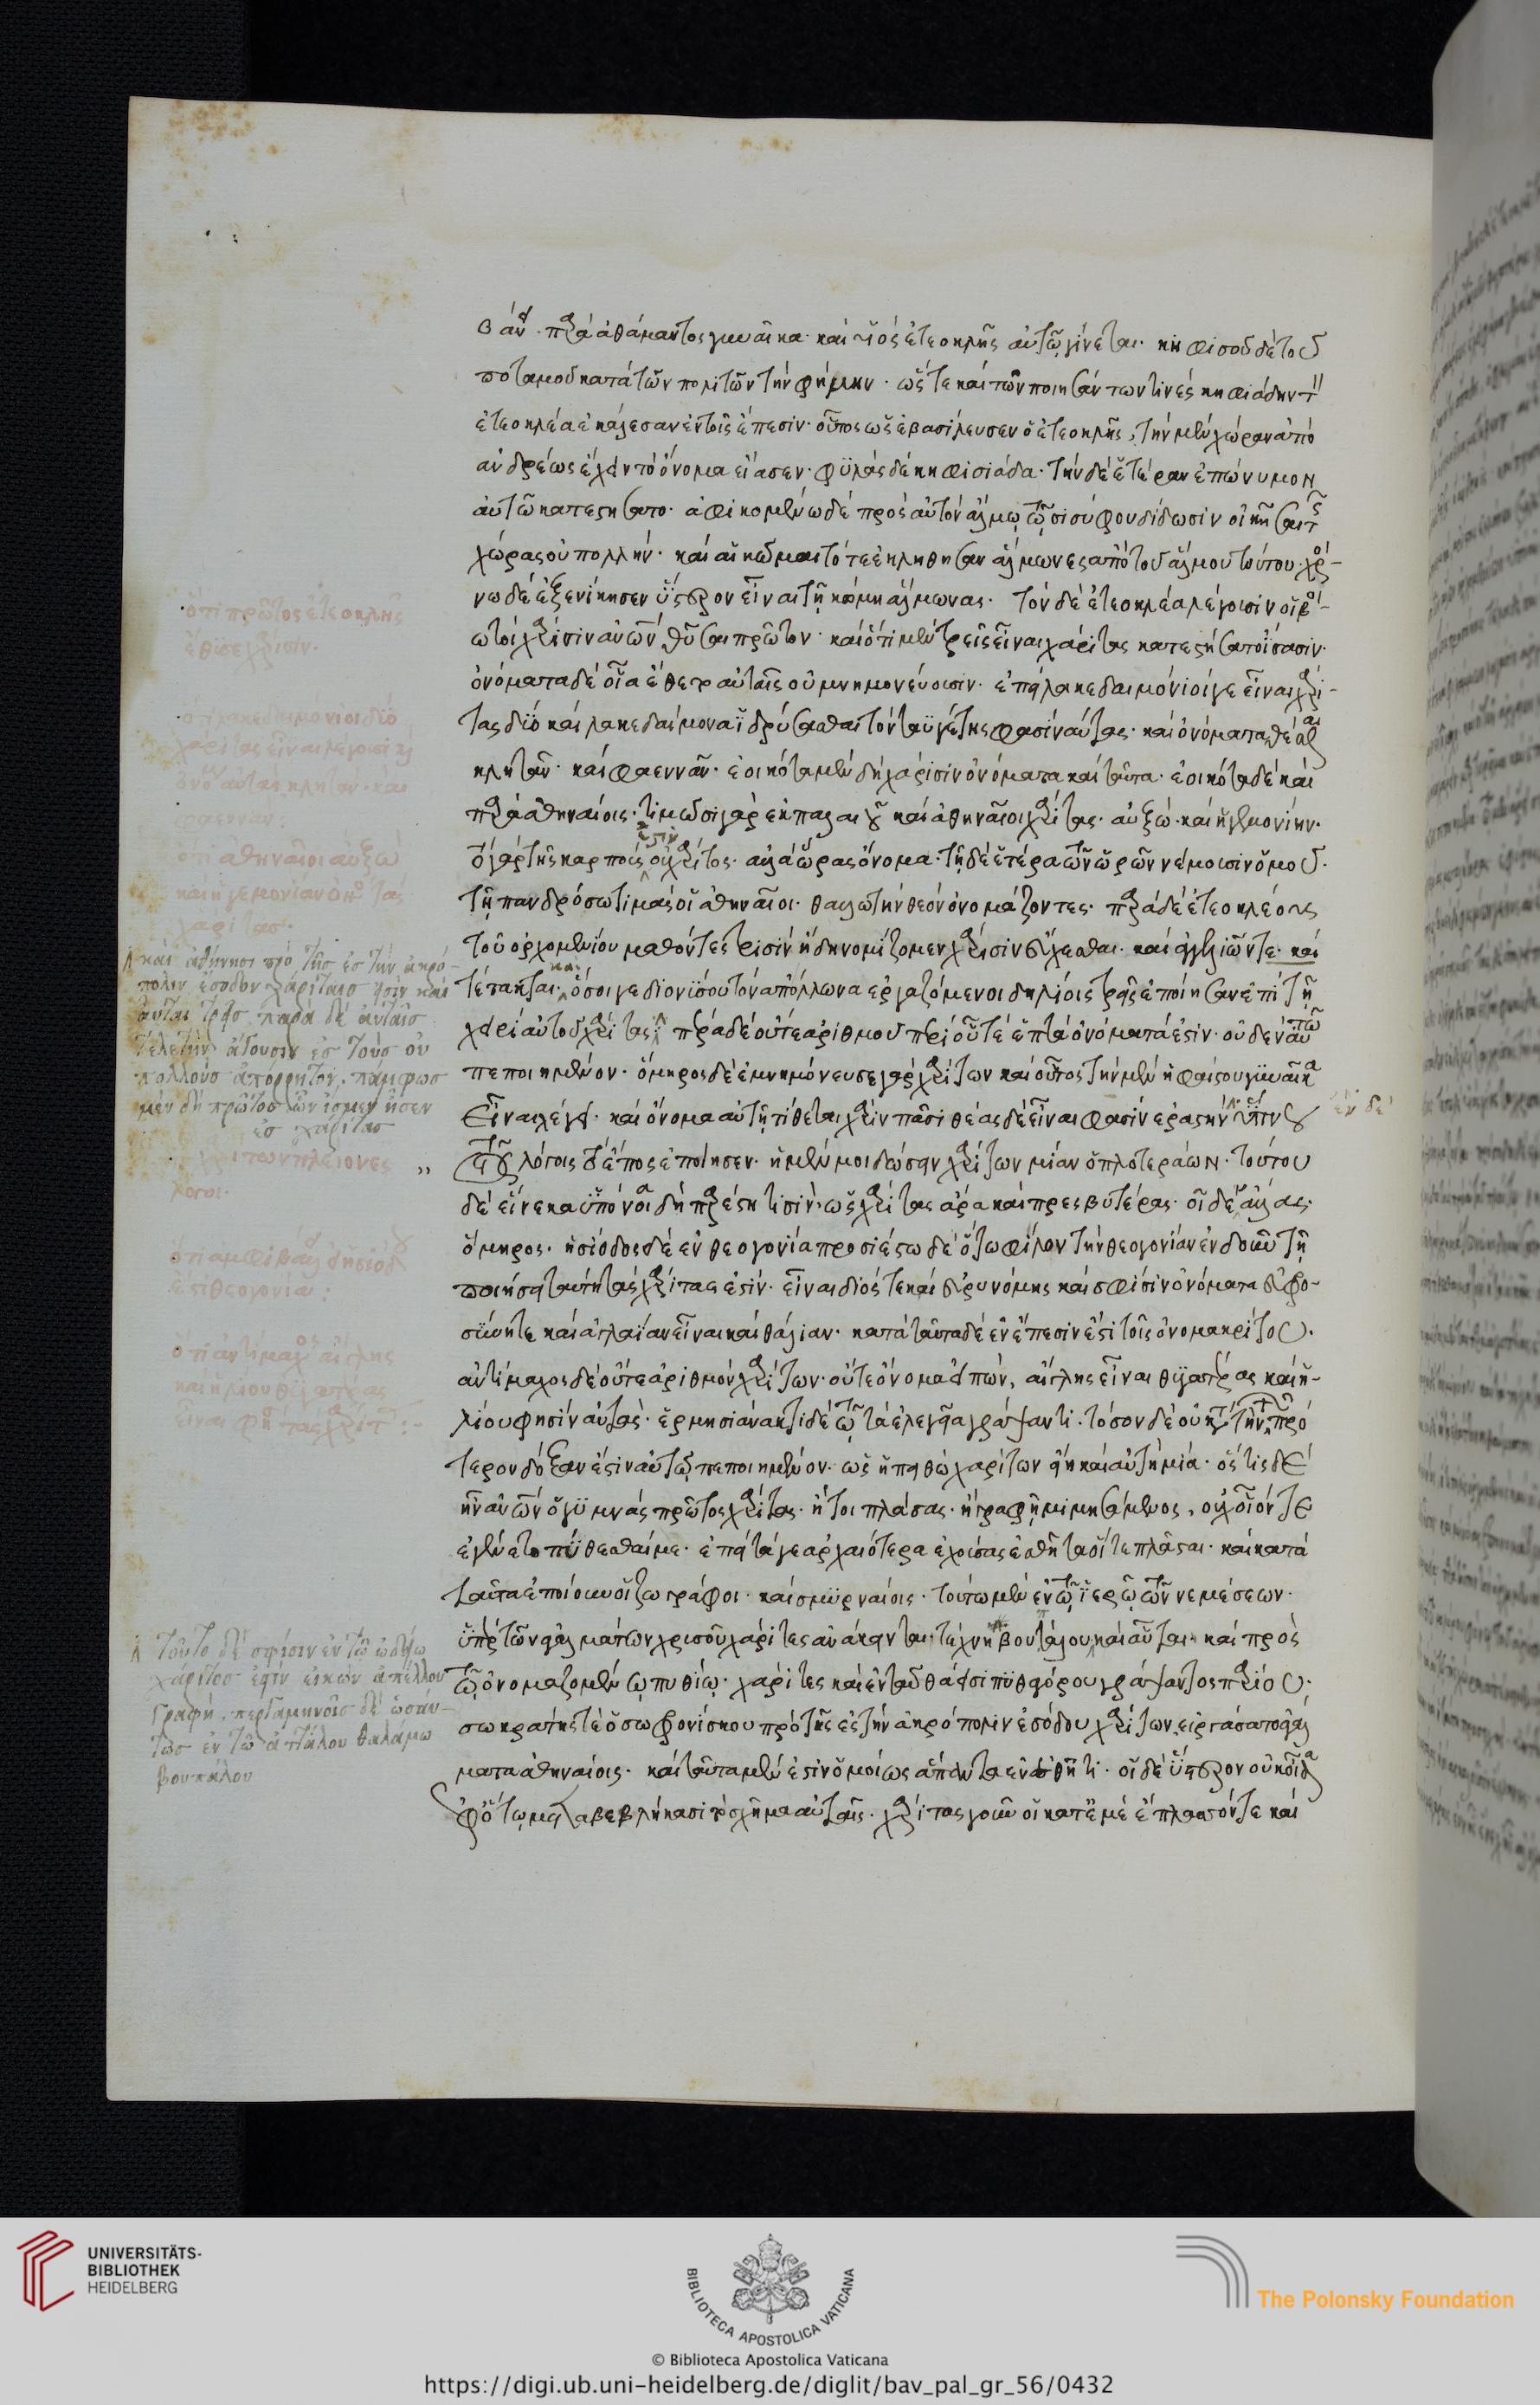 βάνει παρὰ ἀθάμαντος γυναῖκα· καὶ υἱὸς ἐτεοκλῆς αὐτῷ γίνεται. κηφισοῦ δὲ τοῦ
ποταμοῦ κατὰ τῶν πολιτῶν τὴν φήμην· ὥστε καὶ τῶν ποιησάντων τινὲς κηφιάδην τὸν
ἐτεοκλέα ἐκάλεσαν ἐν τοῖς ἔπεσιν· οὗτος ὡς ἐβασίλευσεν ὁ ἐτεοκλῆς, τὴν μὲν χώραν ἀπὸ
ἀνδρέως ἔχειν τὸ ὄνομα εἴασεν· φϋλὰς δὲ κηφισιάδα· τὴν δὲ ἑτέραν ἐπώνυμον
αὐτῶ κατεστήσατο· ἀφικομένω δὲ πρὸς αὐτὸν ἄλμῳ τῷ σισύφου δίδωσιν οἰκῆσαι τῆς
χώρας οὐ πολλήν· καὶ αἱ κῶμαι τότε ἐκλήθησαν ἄλμωνες ἀπὸ τοῦ ἄλμου τούτου· χρό-
νω δὲ ἐξενίκησεν ὕστερον εἶναι τῆ κώμη ἄλμωνας. τὸν δὲ ἐτεοκλέα λέγουσιν οἱ βοι-
ωτοὶ χάρισιν ἀνθρώπων θῦσαι πρῶτον· καὶ ὅτι μὲν τρεῖς εἶναι χάριτας κατεστήσατο ἴσασιν·
ὀνόματα δὲ οἷα ἔθετο αὐταῖς οὐ μνημονεύουσιν· ἐπεὶ λακεδαιμόνιοί γε εἶναι χάρι-
τας δύο καὶ λακεδαίμονα ἱδρύσασθαι τὸν ταϋγέτης φασὶν αὐτάς· καὶ ὀνόματα θέσθαι
κλητὰν· καὶ φαεννάν· ἐοικότα μὲν δὴ χάρισιν ὀνόματα καὶ ταῦτα· ἐοικότα δὲ καὶ
παρὰ ἀθηναίοις· τιμῶσι γὰρ ἐκ παλαιοῦ καὶ ἀθηναῖοι χάριτας· αὐξώ· καὶ ἡγεμονίην·
τὸ γὰρ τῆς καρποῖς ἐστιν οὐ χάριτος· ἀλλὰ ὥρας ὄνομα· τῇ δὲ ἑτέρα τῶν ὡρῶν νέμουσιν ὁμοῦ·
τῇ πανδρόσω τιμὰς οἱ ἀθηναῖοι· θαλλὼ τὴν θεὸν ὀνομάζοντες· παρὰ δὲ ἐτεοκλέους
τοῦ ὀρχομενίου μαθόντες τρισὶν ἤδη νομίζομεν χάρισιν εὔχεσθαι· καὶ ἀγγελίων τε· καὶ
τέτακται· καὶ ὅσοι γε διονύσου τὸν ἀπόλλωνα ἐργαζόμενοι δηλίοις τρεῖς ἐποίησαν ἐπὶ τῇ
χειρὶ αὐτοῦ χάριτας
πεποιημένον· ὅμηρος δὲ ἐμνημόνευσε γὰρ χαρίτων καὶ οὗτος τὴν μὲν ἡφαίστου γυναῖκα
εἶναι λέγει· καὶ ὄνομα αὐτῇ τίθεται χάριν πασιθέας δὲ εἶναι φασὶν ἐραστὴν ὕπνου ἐν δὲ
τοῦ λόγοις τὸ ἔπος ἐποίησεν· ἦ μὲν μοι δώσειν χαρίτων μίαν ὁπλοτεράων· τούτου
δὲ εἵνεκα ὑπόνοια δὴ παρέστη τισίν· ὡς χάριτας ἄρα καὶ πρεσβυτέρας οἶδεν ἄλλας·
ὅμηρος· ἡσίοδος δὲ ἐν θεογονία προσιέσθω δὲ ὅτω φίλον τὴν θεογονίαν ἐν δ' οὖν τῇ
ποιήσει ταύτη τὰς χάριτας ἐστίν· εἶναι διός τε καὶ εὐρυνόμης καὶ σφίσιν ὀνόματα εὐφρο-
σύνην τε καὶ ἀγλαΐαν εἶναι καὶ θάλιαν· κατὰ ταῦτα δὲ ἐν ἔπεσίν ἐστι τοῖς ὀνομακρίτου·
ἀντίμαχος δὲ οὔτε ἀριθμὸν χαρίτων· οὔτε ὀνόματα εἰπών, αἴγλης εἶναι θυγατέρας καὶ ἡ-
λίου φησὶν αὐτάς· ἑρμησιάνακτι δὲ τῷ τὰ ἐλεγεῖα γράψαντι· τόσον δὲ οὐ κατὰ τὴν πρό
τερον δόξαν ἐστὶν αὐτῷ πεποιημένον· ὡς ἡ πειθὼ χαρίτων εἴη καὶ αὐτὴ μία· ὅστις δὲ
ἦν ἀνθρώπων ὁ γυμνὰς πρῶτος χάριτας· ἤτοι πλάσας· ἢ γραφῇ μιμησάμενος, οὐχ οἷόν τε
ἐγένετο πυθέσθαι με· ἐπεὶ τά γε ἀρχαιότερα ἐχούσας ἐσθῆτα οἵ τε πλάσται· καὶ κατὰ
ταῦτα ἐποίουν οἱ ζωγράφοι· καὶ σμυρναίοις· τοῦτο μὲν ἐν τῷ ἱερῷ τῶν νεμέσεων·
ὑπὲρ τῶν ἀγαλμάτων χρυσοῦ χάριτες ἀνάκεινται τέχνη
τῷ ὀνομαζομένῳ πυθίῳ· χάριτες καὶ ἐνταῦθά εἰσι πυθαγόρου γράψαντος παρίου·
σωκράτης τε ὁ σωφρονίσκου πρὸ τῆς ἐς τὴν ἀκρόπολιν ἐσόδου χαρίτων εἰργάσατο ἀγάλ
ματα ἀθηναίοις· καὶ ταῦτα μέν ἐστιν ὁμοίως ἅπαντα ἐν ἐσθῆτι· οἱ δὲ ὕστερον οὐκ οἶδα
ἐφ' ὅτῳ μεταβεβλήκασι τὸ σχῆμα αὐταῖς· χάριτας γοῦν οἱ κατ' ἐμὲ ἔπλασσόν τε καὶ
ὅτι πρῶτος ἐτεοκλῆς
ἔθυσε χάρισιν·
ὅτι λακεδαιμόνιοι δύο
χάριτας εἶναι λέγουσι καὶ
κλητὰν· καὶ
φαεννάν:
ὅτι ἀθηναῖοι αὐξὼ
καὶ ἡγεμονίαν
χάριτας·
καὶ ἀθήνησι πρὸ τῆς ἐς τὴν ἀκρό-
πολιν ἐσόδου χάριτες εἰσὶν καὶ
αὗται τρεῖς παρὰ δὲ αὐταῖς
τελετὴν ἄγουσιν ἐς τοὺς οὐ
πολλοὺς ἀπόρρητον. πάμφως
μὲν δὴ πρῶτος ὧν ἴσμεν ᾖσεν
ἐς χάριτας
λόγοι·
ὅτι ἀμφιβάλλει
θεογονία:
ὅτι ἀντίμαχος αἴγλης
καὶ ἡλίου θυγατέρας
εἶναί φησι τὰς χάριτας:
τοῦτο δέ σφισιν ἐν τῶ ὠδείω
χάριτός ἐστιν εἰκὼν ἀπελλοῦ
γραφή. περγαμηνοῖς δὲ ὡσαύ-
τως ἐν τῶ ἀττάλου θαλάμω
βουπάλου
UNIVERSITÄTS-
BIBLIOTHEK
HEIDELBERG
BIBLIOTECA APOSTOLICA VATICANA
The Polonsky Foundation
© Biblioteca Apostolica Vaticana
https://digi.ub.uni-heidelberg.de/diglit/bav_pal_gr_56/0432